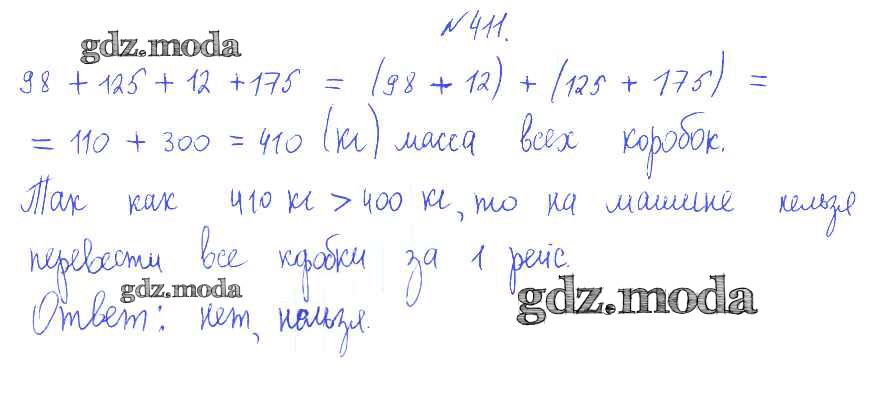 №411.
gdz.moda
98 + 125 + 12 + 175 = (98 + 12) + (125 + 175) =
= 110 + 300 = 410 (кг) масса всех коробок.
Так как 410 кг > 400 кг, то на машине нельзя
перевезти все коробки за 1 рейс.
gdz.moda
gdz.moda
Ответ: нет, нельзя.